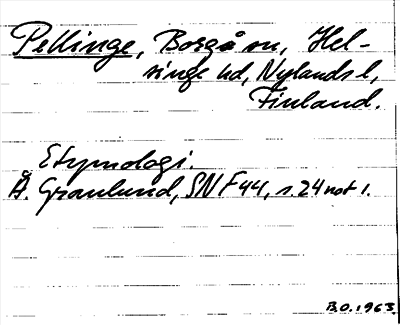 Pellinge, Borgå sn, Hel-
singe hd, Nylands l,
Finland.
Etymologi.
Å. Granlund, SNF 44, s. 24 not 1.
B.O. 1963